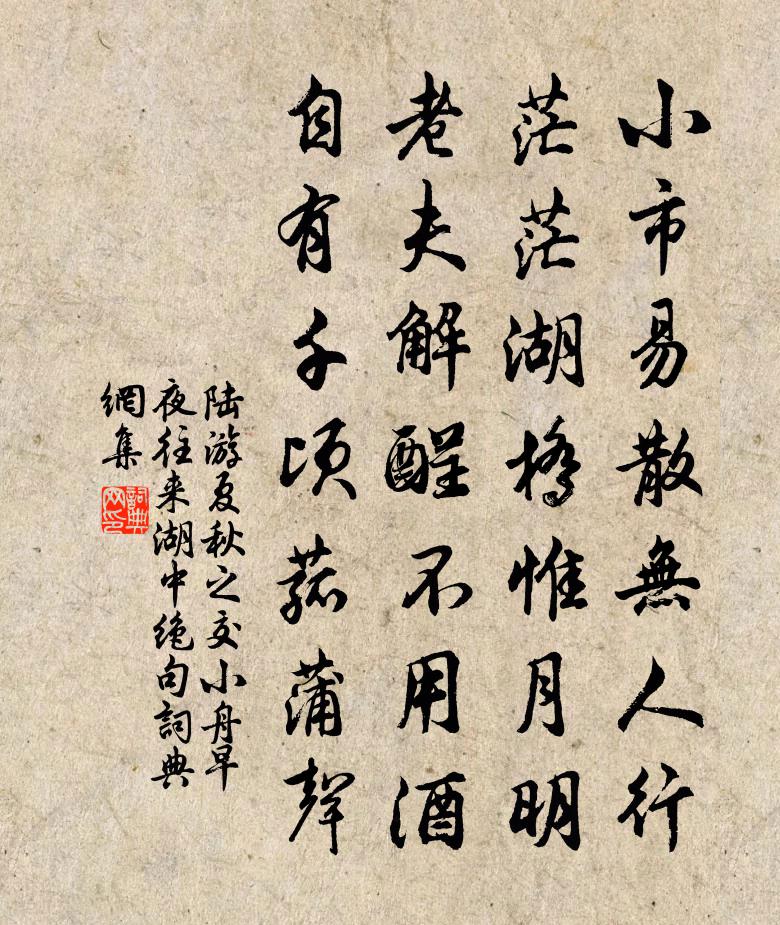 小市易散無人行
茫茫湖橋惟月明
老夫解酲不用酒
自有千頃菰蒲聲
陆游夏秋之交小舟早
夜往来湖中绝句詞典
網集
詞典
网印